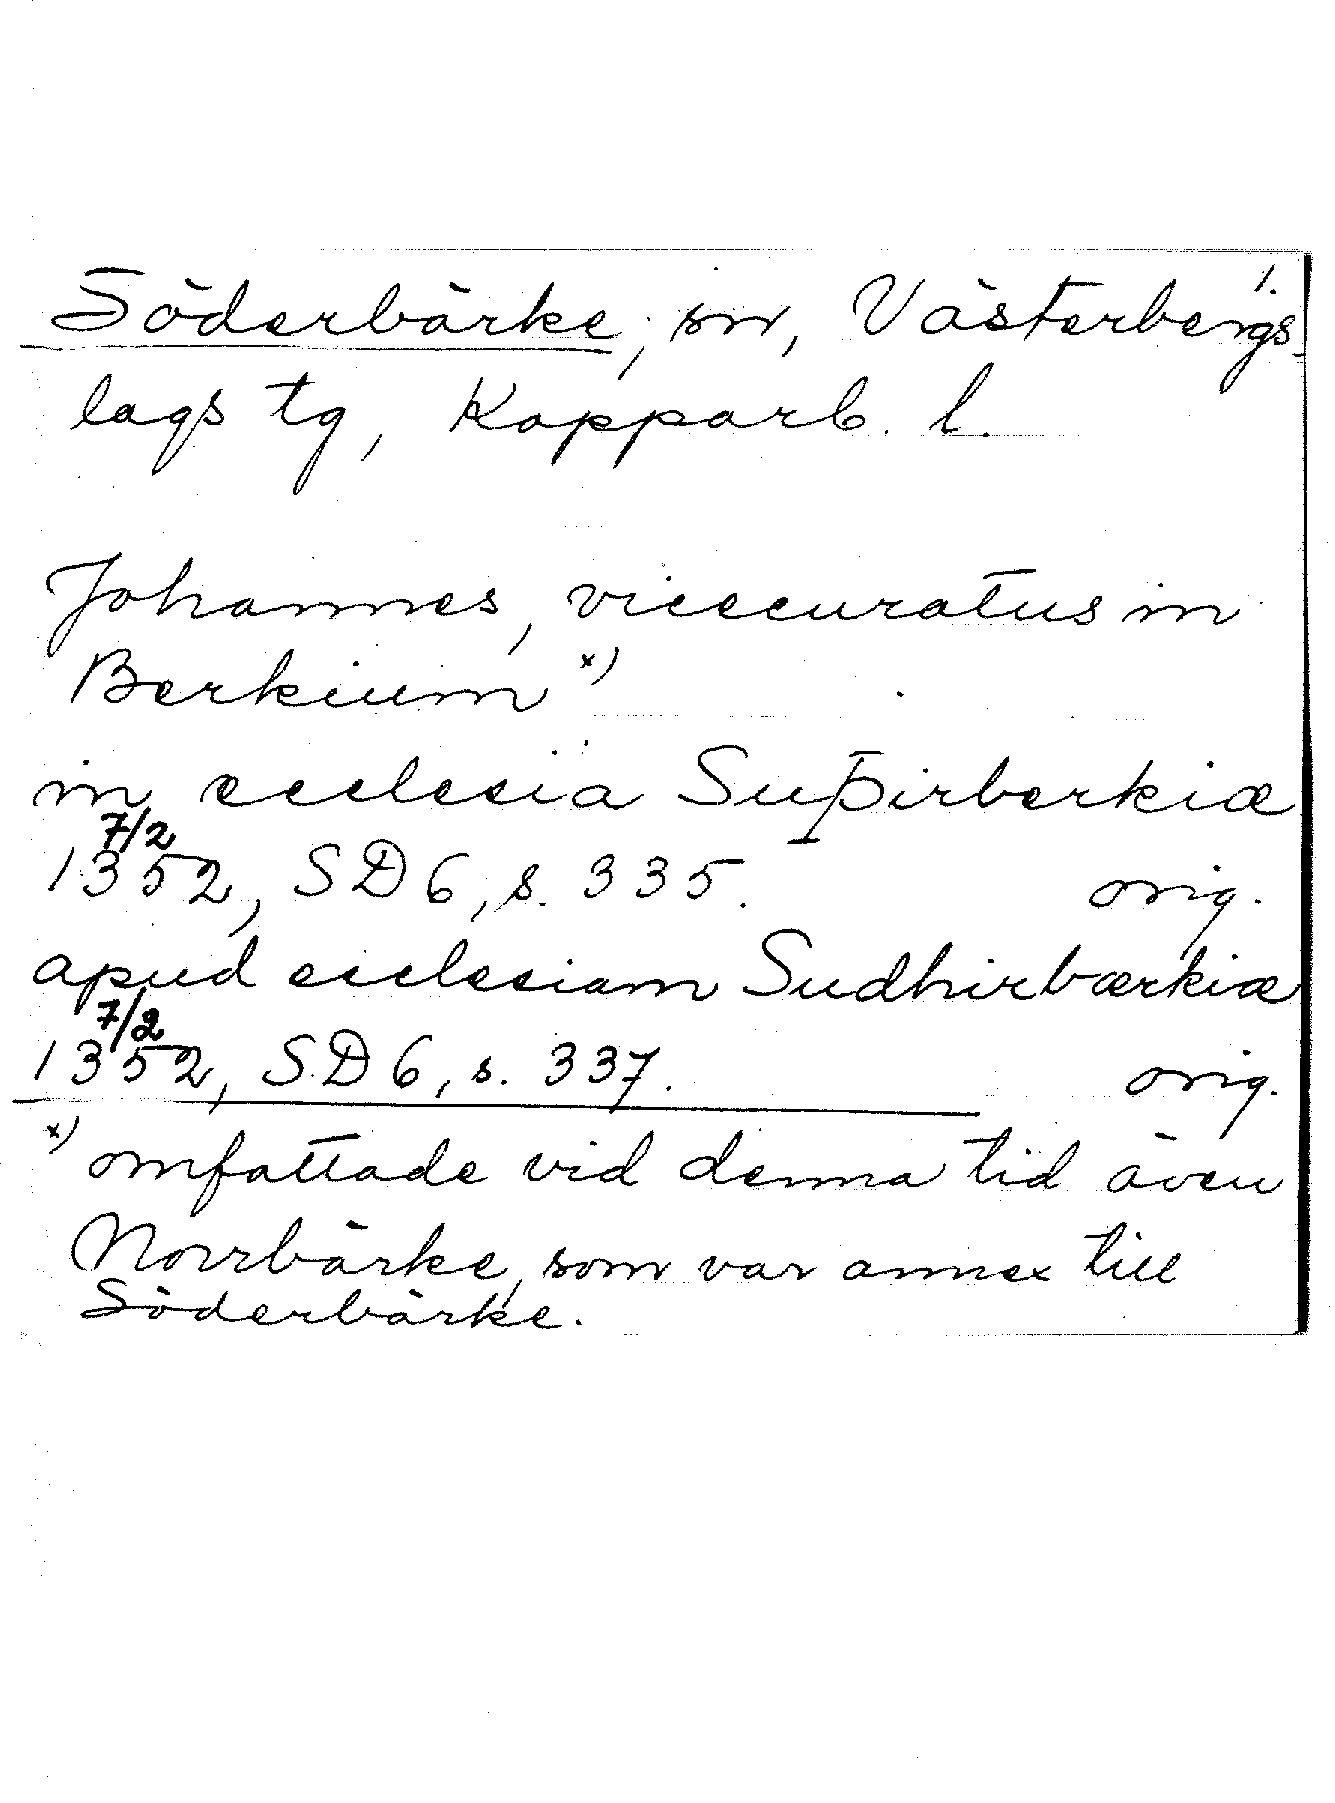 1.
Söderbärke, sn, Västerbergs-
lags tg, Kopparb. l.
Johannes, vicecuratus in
Berkium x)
in ecclesia Suþirberkiæ
7/2
1352, SD 6, s. 335. orig.
apud ecclesiam Sudhirbærkiæ
7/2
1352, SD 6, s. 337. orig.
x) omfattade vid denna tid även
Norrbärke, som var annex till
Söderbärke.